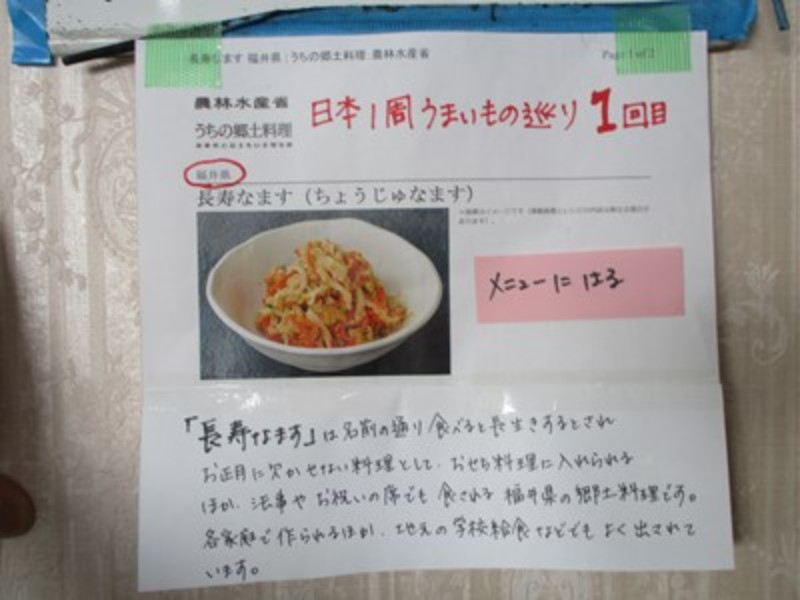 長寿なます 福井県：うちの郷土料理：農林水産省
Page 1 of 2
農林水産省
うちの郷土料理
日本1周うまいもの巡り 1回目
福井県
長寿なます（ちょうじゅなます）
メニューに はる
「長寿なます」は名前の通り食べると長生きするとされ
お正月に欠かせない料理として、おせち料理に入れられる
ほか、法事やお祝いの席でも食される福井県の郷土料理です。
各家庭で作られるほか、地元の学校給食などでもよく出されて
います。